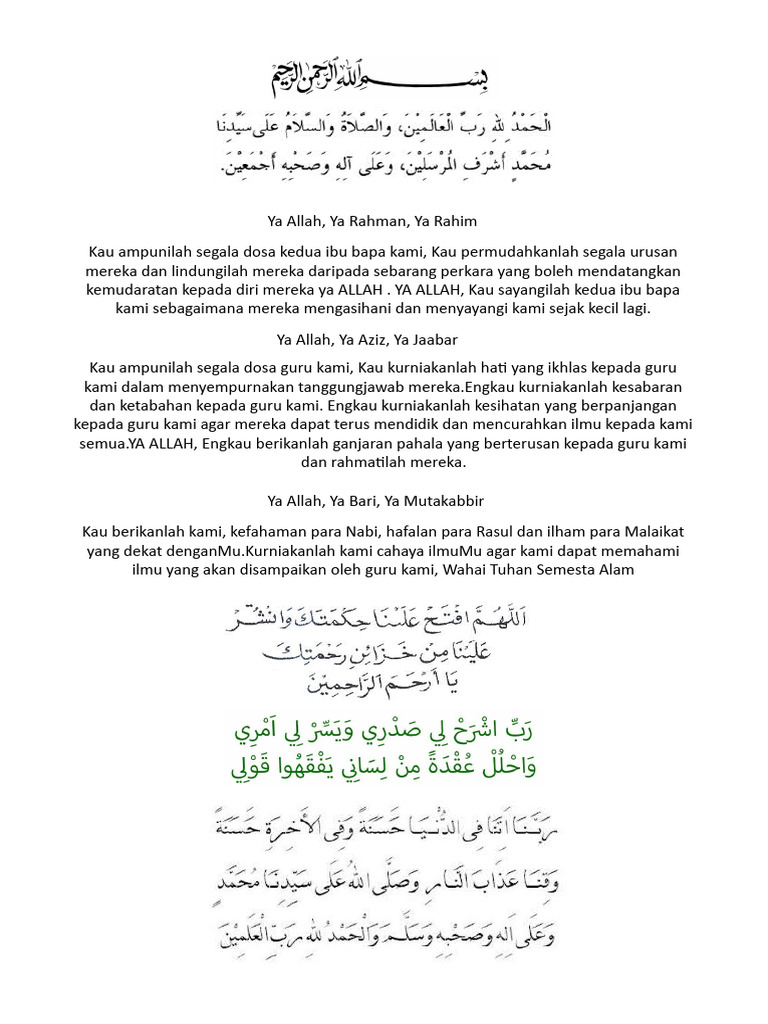 بِسْمِ اللهِ الرَّحْمٰنِ الرَّحِيْمِ
الْحَمْدُ لِلهِ رَبِّ الْعَالَمِيْنَ، وَالصَّلَاةُ وَالسَّلَامُ عَلَى سَيِّدِنَا
مُحَمَّدٍ أَشْرَفِ الْمُرْسَلِيْنَ، وَعَلَى آلِهِ وَصَحْبِهِ أَجْمَعِيْنَ.
Ya Allah, Ya Rahman, Ya Rahim
Kau ampunilah segala dosa kedua ibu bapa kami, Kau permudahkanlah segala urusan
mereka dan lindungilah mereka daripada sebarang perkara yang boleh mendatangkan
kemudaratan kepada diri mereka ya ALLAH . YA ALLAH, Kau sayangilah kedua ibu bapa
kami sebagaimana mereka mengasihani dan menyayangi kami sejak kecil lagi.
Ya Allah, Ya Aziz, Ya Jaabar
Kau ampunilah segala dosa guru kami, Kau kurniakanlah hati yang ikhlas kepada guru
kami dalam menyempurnakan tanggungjawab mereka.Engkau kurniakanlah kesabaran
dan ketabahan kepada guru kami. Engkau kurniakanlah kesihatan yang berpanjangan
kepada guru kami agar mereka dapat terus mendidik dan mencurahkan ilmu kepada kami
semua.YA ALLAH, Engkau berikanlah ganjaran pahala yang berterusan kepada guru kami
dan rahmatilah mereka.
Ya Allah, Ya Bari, Ya Mutakabbir
Kau berikanlah kami, kefahaman para Nabi, hafalan para Rasul dan ilham para Malaikat
yang dekat denganMu.Kurniakanlah kami cahaya ilmuMu agar kami dapat memahami
ilmu yang akan disampaikan oleh guru kami, Wahai Tuhan Semesta Alam
اَللَّهُمَّ افْتَحْ عَلَيْنَا حِكْمَتَكَ وَانْشُرْ
عَلَيْنَا مِنْ خَزَائِنِ رَحْمَتِكَ
يَا أَرْحَمَ الرَّاحِمِيْنَ
رَبِّ اشْرَحْ لِي صَدْرِي وَيَسِّرْ لِي اَمْرِي
وَاحْلُلْ عُقْدَةً مِنْ لِسَانِي يَفْقَهُوا قَوْلِي
رَبَّنَا اَتِنَا فِى الدُّنْيَا حَسَنَةً وَفِى الْأَخِرَةِ حَسَنَةً
وَقِنَا عَذَابَ النَّارِ وَصَلَّى اللهُ عَلَى سَيِّدِنَا مُحَمَّدٍ
وَعَلَى اَلِهِ وَصَحْبِهِ وَسَلَّمَ وَالْحَمْدُ لِلهِ رَبِّ الْعَلَمِيْنَ